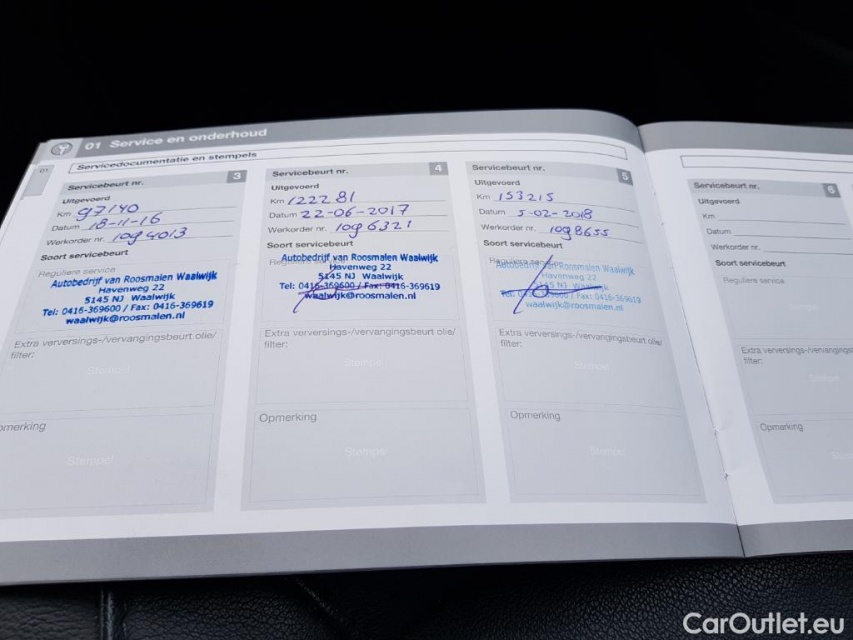 01 Service en onderhoud
01
Servicedocumentatie en stempels
Servicebeurt nr. 3
Uitgevoerd
Km 97140
Datum 18-11-16
Werkorder nr. 1094013
Soort servicebeurt
Reguliere service
Autobedrijf van Roosmalen Waalwijk
Havenweg 22
5145 NJ Waalwijk
Tel: 0416-369600 / Fax: 0416-369619
waalwijk@roosmalen.nl
Extra verversings-/vervangingsbeurt olie/
filter:
Stempel
pmerking
Stempel
Servicebeurt nr. 4
Uitgevoerd
Km 122281
Datum 22-06-2017
Werkorder nr. 1096321
Soort servicebeurt
Autobedrijf van Roosmalen Waalwijk
Havenweg 22
5145 NJ Waalwijk
Tel: 0416-369600 / Fax: 0416-369619
waalwijk@roosmalen.nl
Extra verversings-/vervangingsbeurt olie/
filter:
Stempel
Opmerking
Stempel
Servicebeurt nr. 5
Uitgevoerd
Km 153215
Datum 5-02-2018
Werkorder nr. 1098655
Soort servicebeurt
Reguliere service
Autobedrijf van Roosmalen Waalwijk
Havenweg 22
5145 NJ Waalwijk
Tel: 0416-369600 / Fax: 0416-369619
waalwijk@roosmalen.nl
Extra verversings-/vervangingsbeurt olie/
filter:
Stempel
Opmerking
Stempel
Servicebeurt nr. 6
Uitgevoerd
Km
Datum
Werkorder nr.
Soort servicebeurt
Reguliere service
Extra verversings-/vervangings
filter:
Stempel
Opmerking
CarOutlet.eu